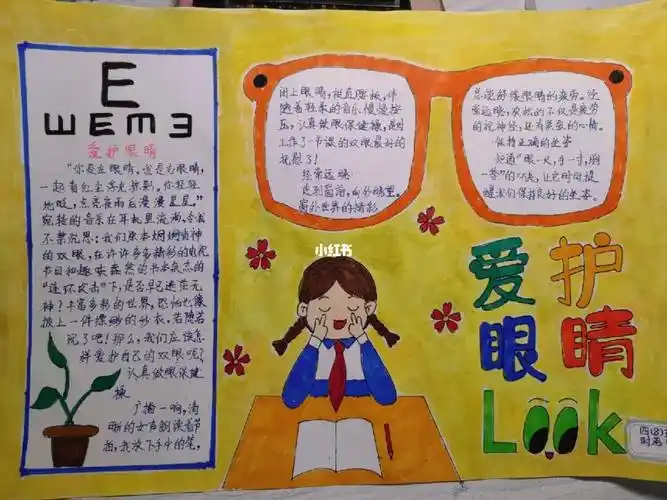 E
E M E
爱护眼睛
“你是左眼睛，我是右眼睛，
一起看红尘浮光掠影，你轻轻
地眨，点亮夜雨后漫漫星星。”
宛转的音乐在耳机里流淌，令我
不禁沉思：我们原本炯炯有神
的双眼，在许许多多精彩的电视
节目和趣味盎然的书本杂志的
“连环攻击”下，是否早已疲惫无
神？丰富多彩的世界，恐怕也像
披上一件缥缈的纱衣，若隐若
现了吧！那么，我们应该怎
样爱护自己的双眼呢？
认真做眼保健
操
广播一响，清
晰的女声朗读着节
拍，我放下手中的笔，
闭上眼睛，挺直腰板，伴
随着轻柔的音乐慢慢按
压，认真做眼保健操，是对
工作了一节课的双眼最好的
抚慰了！
经常远眺
走到窗沿，向外眺望，
窗外世界的精彩
总能舒缓眼睛的疲劳。经
常远眺，放松的不仅是疲劳
的视神经，还有紧张的心情。
保持正确的坐姿
知道“眼一尺，手一寸，胸
一拳”的口诀，让它时时提
醒我们保持良好的坐姿。
小红书
爱护
眼睛
Look
四(8)